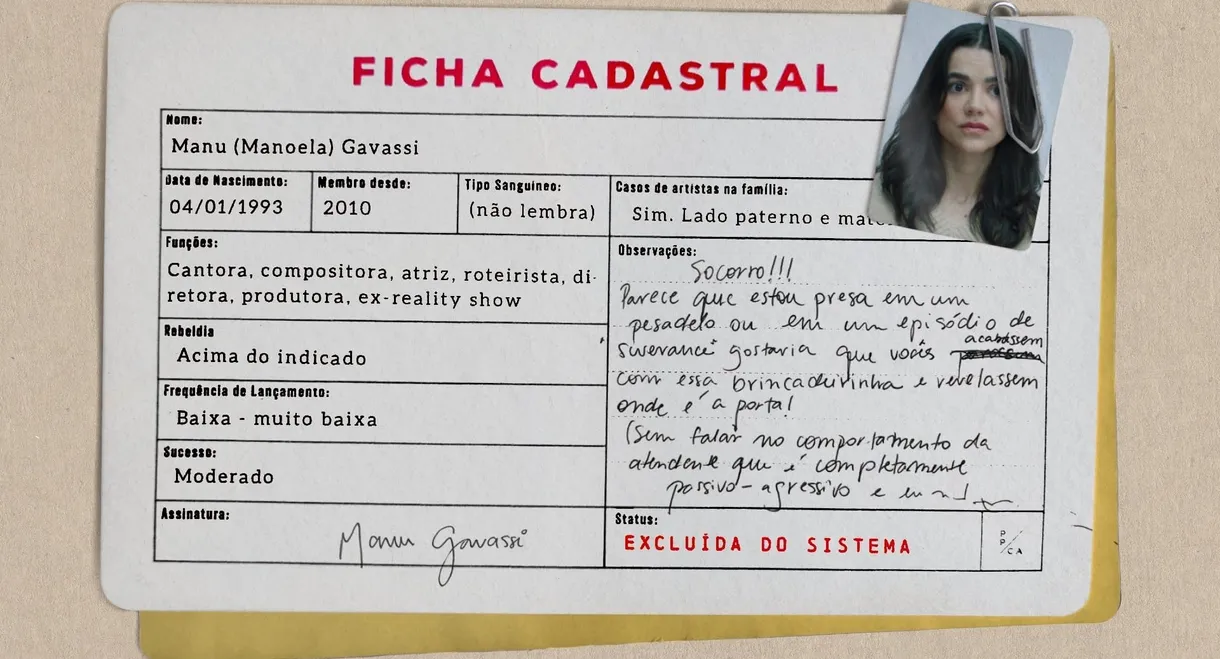 FICHA CADASTRAL
Nome:
Manu (Manoela) Gavassi
Data de Nascimento:
04/01/1993
Membro desde:
2010
Tipo Sanguíneo:
(não lembra)
Casos de artistas na família:
Sim. Lado paterno e
Funções:
Cantora, compositora, atriz, roteirista, di-
retora, produtora, ex-reality show
Rebeldia
Acima do indicado
Frequência de Lançamento:
Baixa - muito baixa
Sucesso:
Moderado
Assinatura:
Manu Gavassi
Observações:
Socorro!!!
Parece que estou presa em um
pesadelo ou em um episódio de
gostaria que vocês acabassem
com essa brincadeirinha e revelassem
onde é a porta!
(Sem falar no comportamento da
atendente que é completamente
passivo-agressivo e eu
Status:
EXCLUÍDA DO SISTEMA
P
P/CA